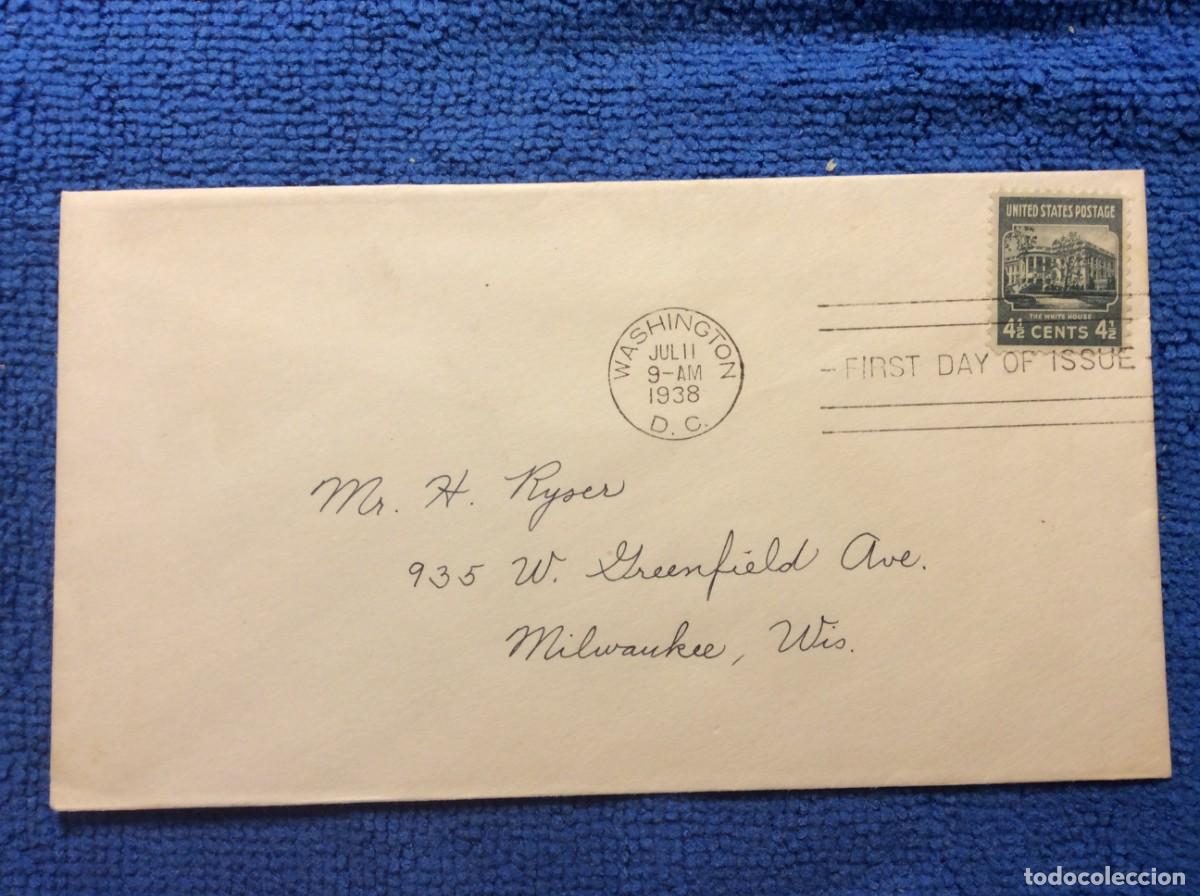 UNITED STATES POSTAGE
THE WHITE HOUSE
4½ CENTS 4½
WASHINGTON
JUL 11
9-AM
1938
D. C.
FIRST DAY OF ISSUE
Mr. H. Ryser
935 W. Greenfield Ave.
Milwaukee, Wis.
todocoleccion